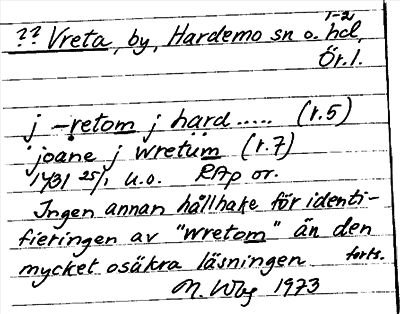 1-2
?? Vreta, by, Hardemo sn o. hd,
Ör. l.
j -retom j härd..... (r.5)
joane j wretum (r.7)
1431 25/1 u.o. RAp or.
Ingen annan hållhake för identi-
fieringen av "wretom" än den
mycket osäkra läsningen forts.
1973